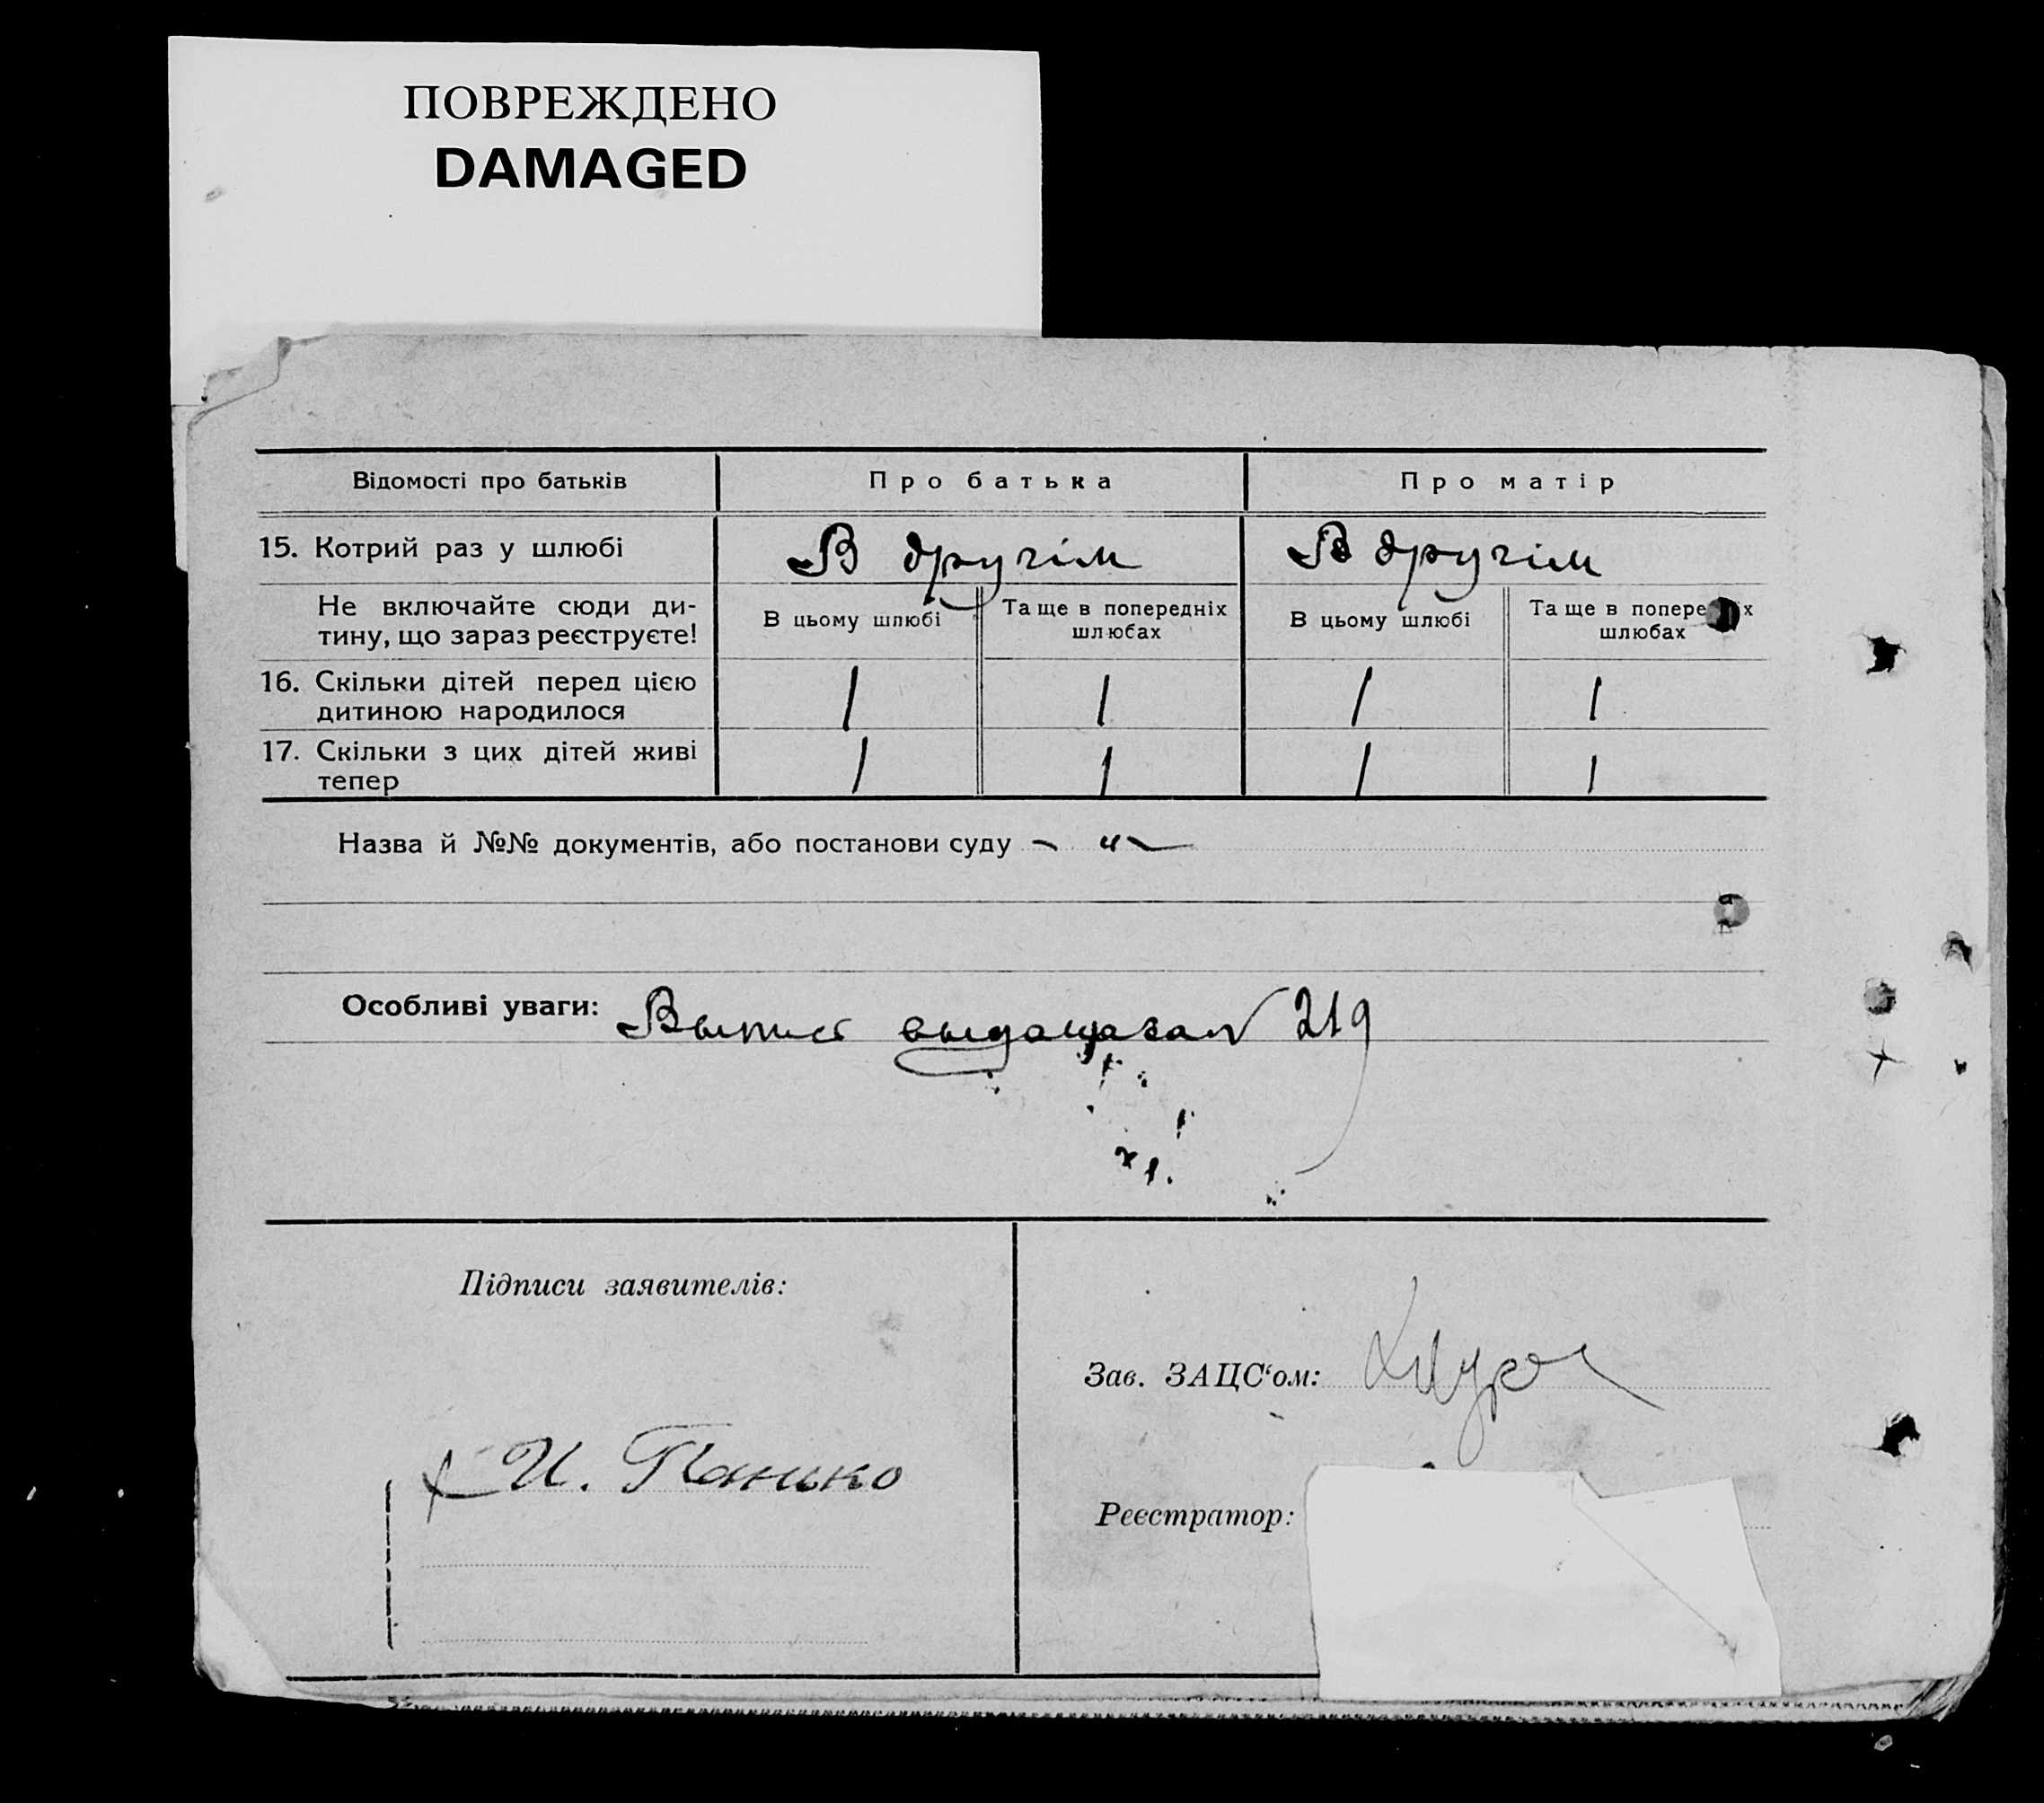 ПОВРЕЖДЕНО
DAMAGED
Відомості про батьків
Про батька
Про матір
15. Котрий раз у шлюбі
В другім
В другім
Не включайте сюди ди-
тину, що зараз реєструєте!
В цьому шлюбі
Та ще в попередніх
шлюбах
В цьому шлюбі
Та ще в попере х
шлюбах
16. Скільки дітей перед цією
дитиною народилося
1
1
1
1
17. Скільки з цих дітей живі
тепер
1
1
1
1
Назва й №№ документів, або постанови суду - " -
Особливі уваги: Выпись за N 219
Підписи заявителів:
Зав. ЗАЦС‘ом:
И. Панько
Реєстратор: